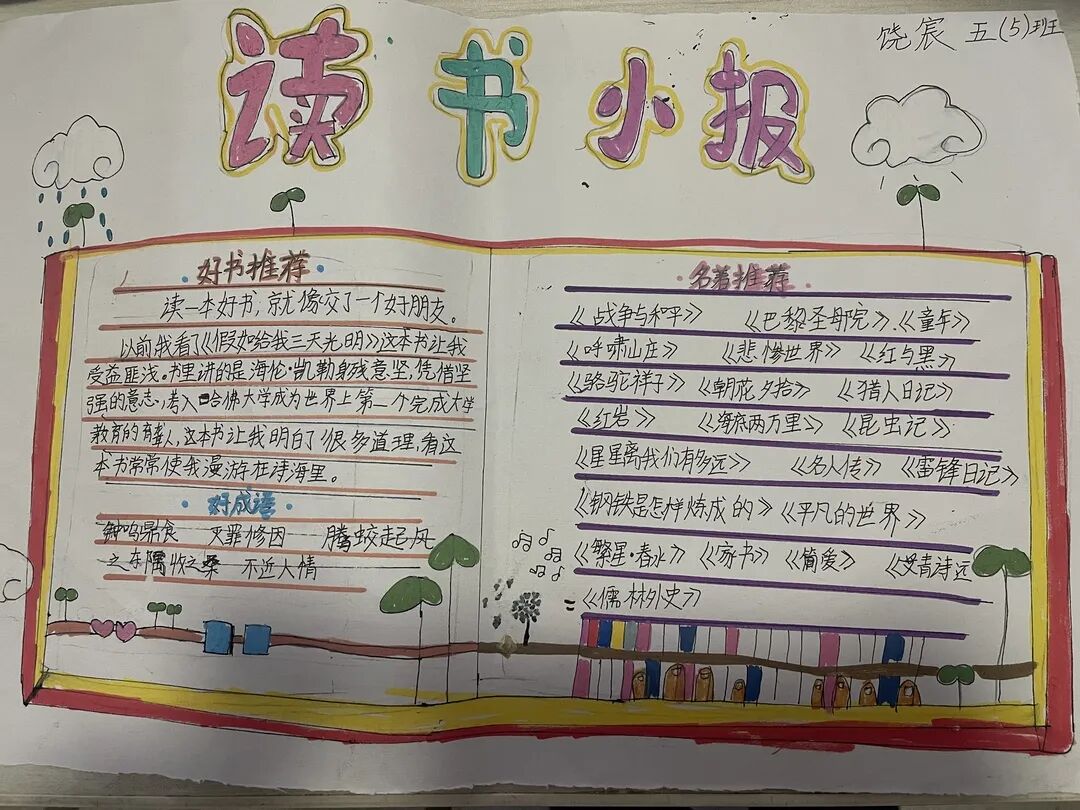 饶宸 五(5)班
读书小报
好书推荐
读一本好书，就像交了一个好朋友。
以前我看了《假如给我三天光明》这本书让我
受益匪浅。书里讲的是海伦·凯勒身残意坚，凭借坚
强的意志，考入哈佛大学成为世界上第一个完成大学
教育的盲聋人，这本书让我明白了很多道理，看这
本书常常使我漫游在诗海里。
好成语
钟鸣鼎食 灭罪修因 腾蛟起凤
之东隅收之桑 不近人情
名著推荐
《战争与和平》 《巴黎圣母院》、《童年》
《呼啸山庄》 《悲惨世界》 《红与黑》
《骆驼祥子》 《朝花夕拾》 《猎人日记》
《红岩》 《海底两万里》 《昆虫记》
《星星离我们有多远》 《名人传》 《雷锋日记》
《钢铁是怎样炼成的》《平凡的世界》
《繁星·春水》 《家书》 《简爱》 《艾青诗
《儒林外史》